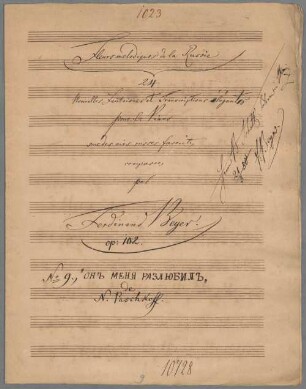 1023
Fleurs mélodiques de la Russie
24
Nouvelles, Fantaisies et Transcriptions élégantes
pour le Piano
sur des airs russes favorits,
composées
par
Ferdinand Beyer.
op: 162.
No 9., "ОНЪ МЕНЯ РАЗЛЮБИЛЪ,
de
N. Paschkoff.
10728
9